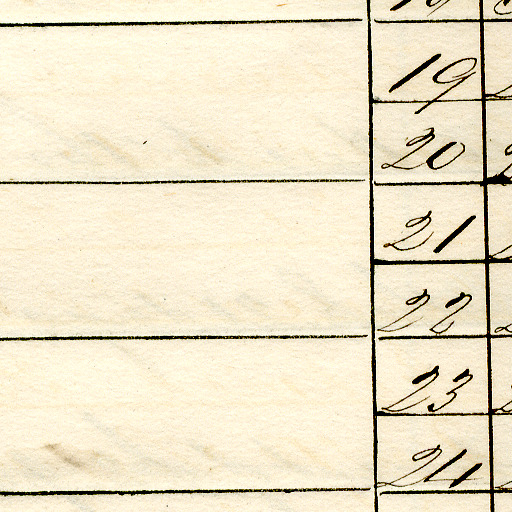 19
20
21
22
23
24